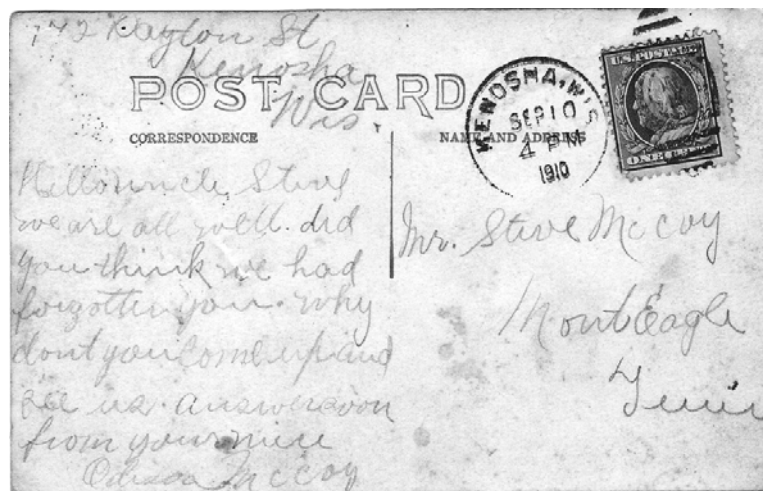 742 Dayton St
Kenosha
Wis.
POST CARD
CORRESPONDENCE
NAME AND ADDRESS
KENOSHA, WIS
SEP 10
4 PM
1910
U.S. POSTAGE
ONE CENT
Hello uncle Steve
we are all well. did
you think we had
forgotten you. why
dont you come up and
see us. answer soon
from your niece
McCoy
Mr. Steve McCoy
Mont Eagle
Tenn